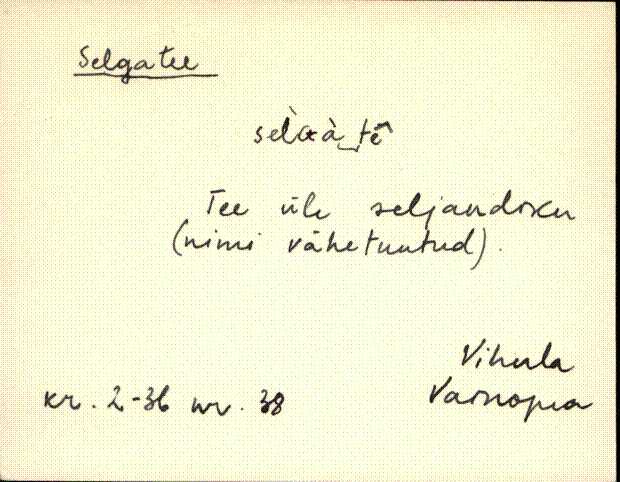 Selgatee
selGà_tē̂
Tee üle seljandiku
(nimi vähetuntud).
Vihula
kr. 2-36 nr. 38
Vainupea